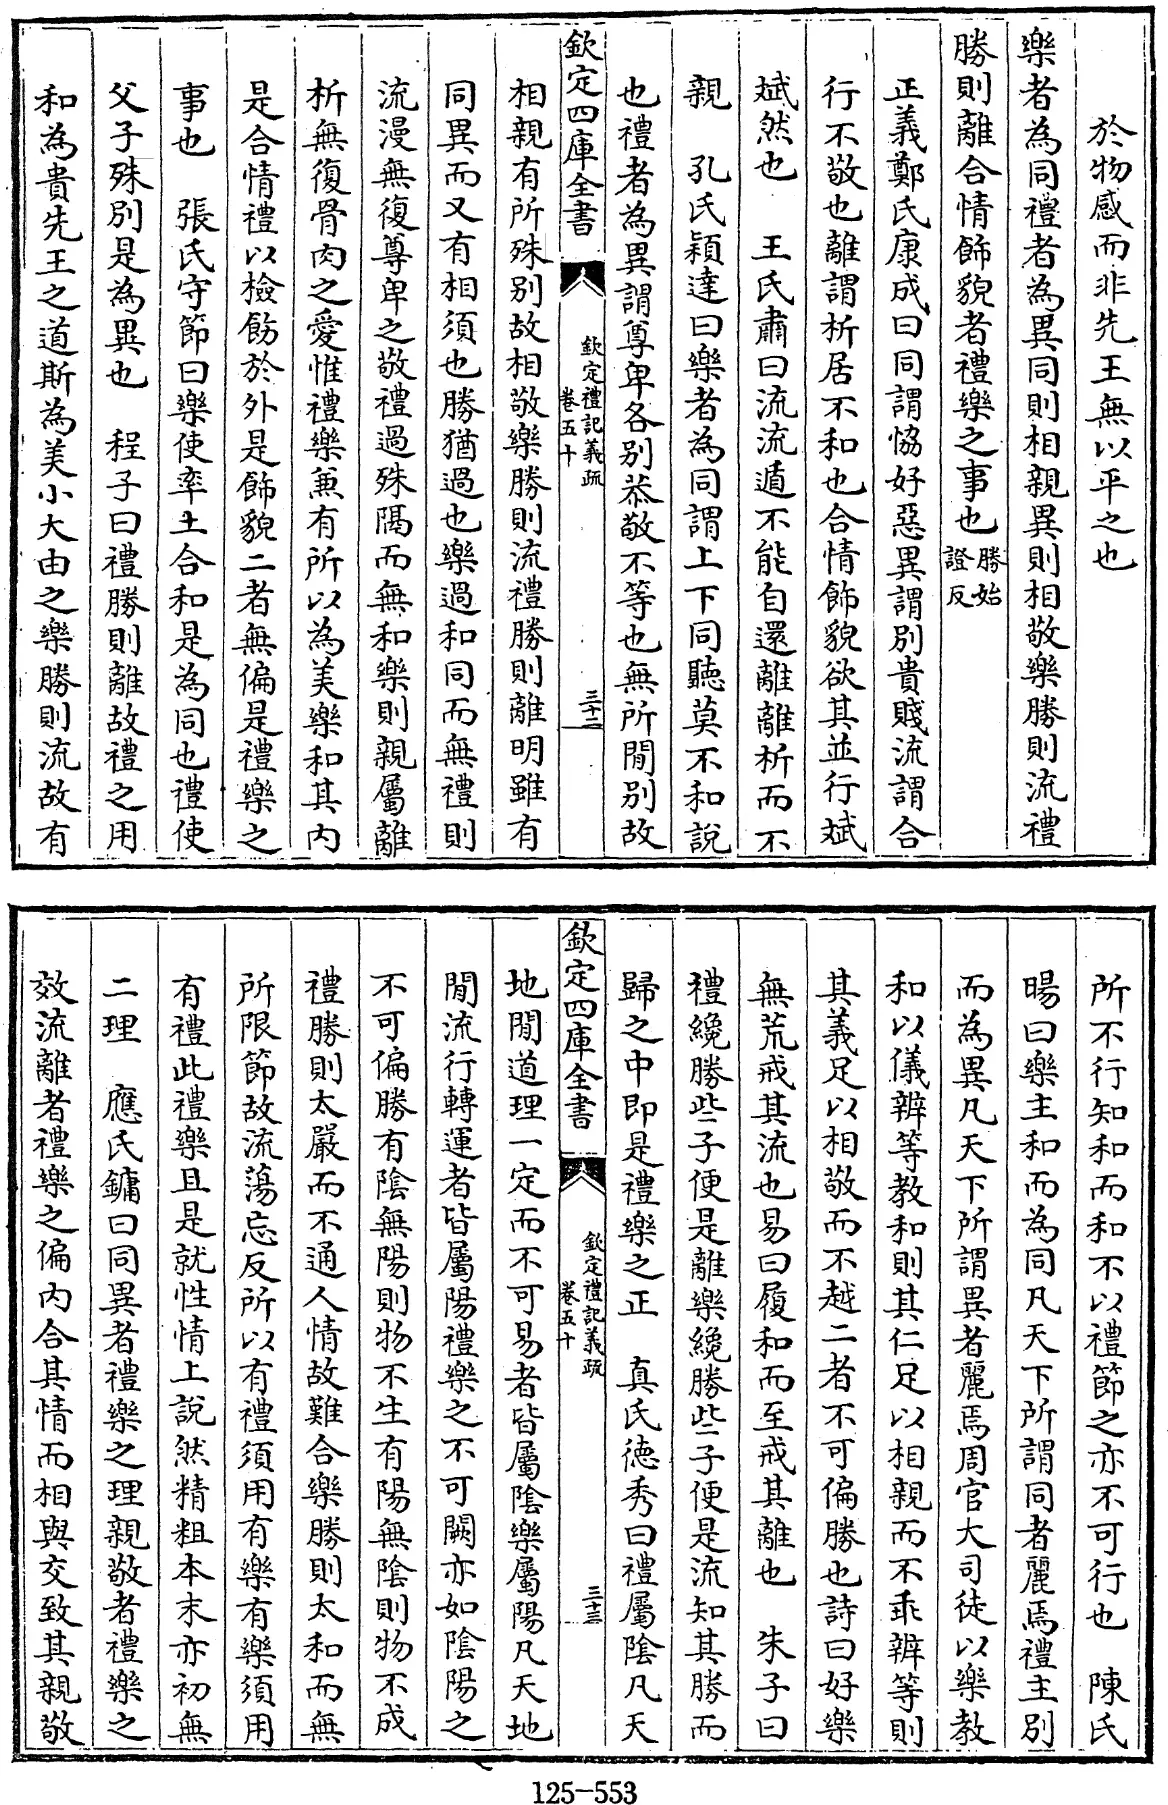 於物感而非先王無以平之也
樂者為同禮者為異同則相親異則相敬樂勝則流禮
勝則離合情飾貌者禮樂之事也勝始
證反
正義鄭氏康成曰同謂恊好惡異謂別貴賤流謂合
行不敬也離謂析居不和也合情飾貌欲其並行斌
斌然也　王氏肅曰流流遁不能自還離離析而不
親　孔氏穎達曰樂者為同謂上下同聽莫不和說
也禮者為異謂尊卑各別恭敬不等也無所閒別故
欽定四庫全書
欽定禮記義疏
卷五十
三十二
相親有所殊別故相敬樂勝則流禮勝則離明雖有
同異而又有相須也勝猶過也樂過和同而無禮則
流漫無復尊卑之敬禮過殊隔而無和樂則親屬離
析無復骨肉之愛惟禮樂兼有所以為美樂和其內
是合情禮以檢飭於外是飾貌二者無偏是禮樂之
事也　張氏守節曰樂使率土合和是為同也禮使
父子殊別是為異也　程子曰禮勝則離故禮之用
和為貴先王之道斯為美小大由之樂勝則流故有
所不行知和而和不以禮節之亦不可行也　陳氏
暘曰樂主和而為同凡天下所謂同者麗焉禮主別
而為異凡天下所謂異者麗焉周官大司徒以樂教
和以儀辨等教和則其仁足以相親而不乖辨等則
其義足以相敬而不越二者不可偏勝也詩曰好樂
無荒戒其流也易曰履和而至戒其離也　朱子曰
禮纔勝些子便是離樂纔勝些子便是流知其勝而
歸之中即是禮樂之正　真氏德秀曰禮屬陰凡天
欽定四庫全書
欽定禮記義疏
卷五十
三十三
地閒道理一定而不可易者皆屬陰樂屬陽凡天地
閒流行轉運者皆屬陽禮樂之不可闕亦如陰陽之
不可偏勝有陰無陽則物不生有陽無陰則物不成
禮勝則太嚴而不通人情故難合樂勝則太和而無
所限節故流蕩忘反所以有禮須用有樂有樂須用
有禮此禮樂且是就性情上說然精粗本末亦初無
二理　應氏鏞曰同異者禮樂之理親敬者禮樂之
效流離者禮樂之偏內合其情而相與交致其親敬
125-553